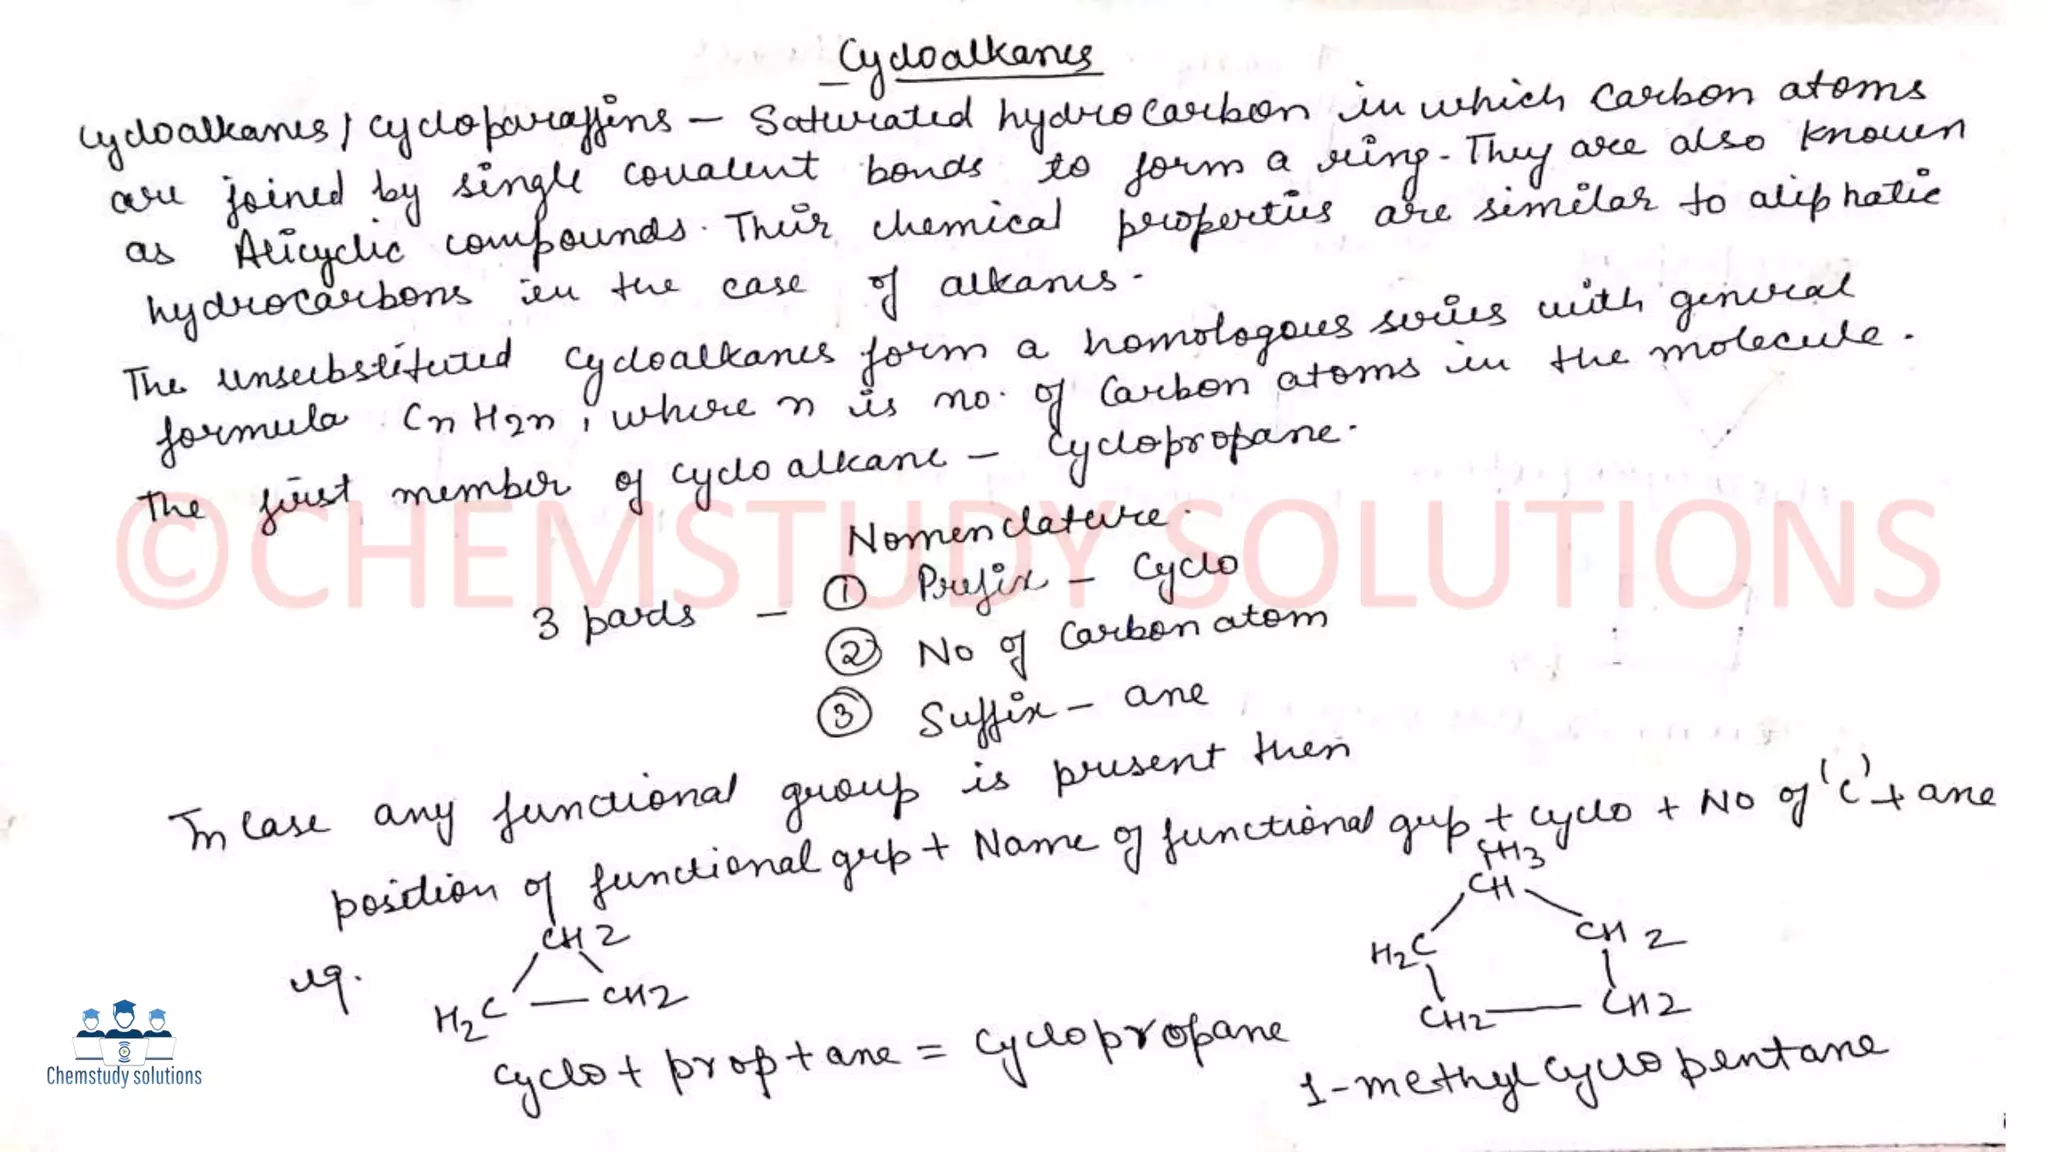 Cycloalkanes
Cycloalkanes / cycloparaffins - Saturated hydrocarbon in which carbon atoms
are joined by single covalent bonds to form a ring. They are also known
as Alicyclic compounds. Their chemical properties are similar to aliphatic
hydrocarbons in the case of alkanes.
The unsubstituted cycloalkanes form a homologous series with general
formula CnH2n, where n is no. of Carbon atoms in the molecule.
The first member of cyclo alkane - Cyclopropane.
©CHEMSTUDY SOLUTIONS
Nomenclature.
3 parts - ① Prefix - Cyclo
② No of Carbon atom
③ Suffix - ane
In case any functional group is present then
position of functional grp + Name of functional grp + cyclo + No of 'C' + ane
eg.
CH2
H2C — CH2
CH3
CH
H2C CH2
CH2 — CH2
cyclo + prop + ane = Cyclopropane
1-methylcyclopentane
Chemstudy solutions